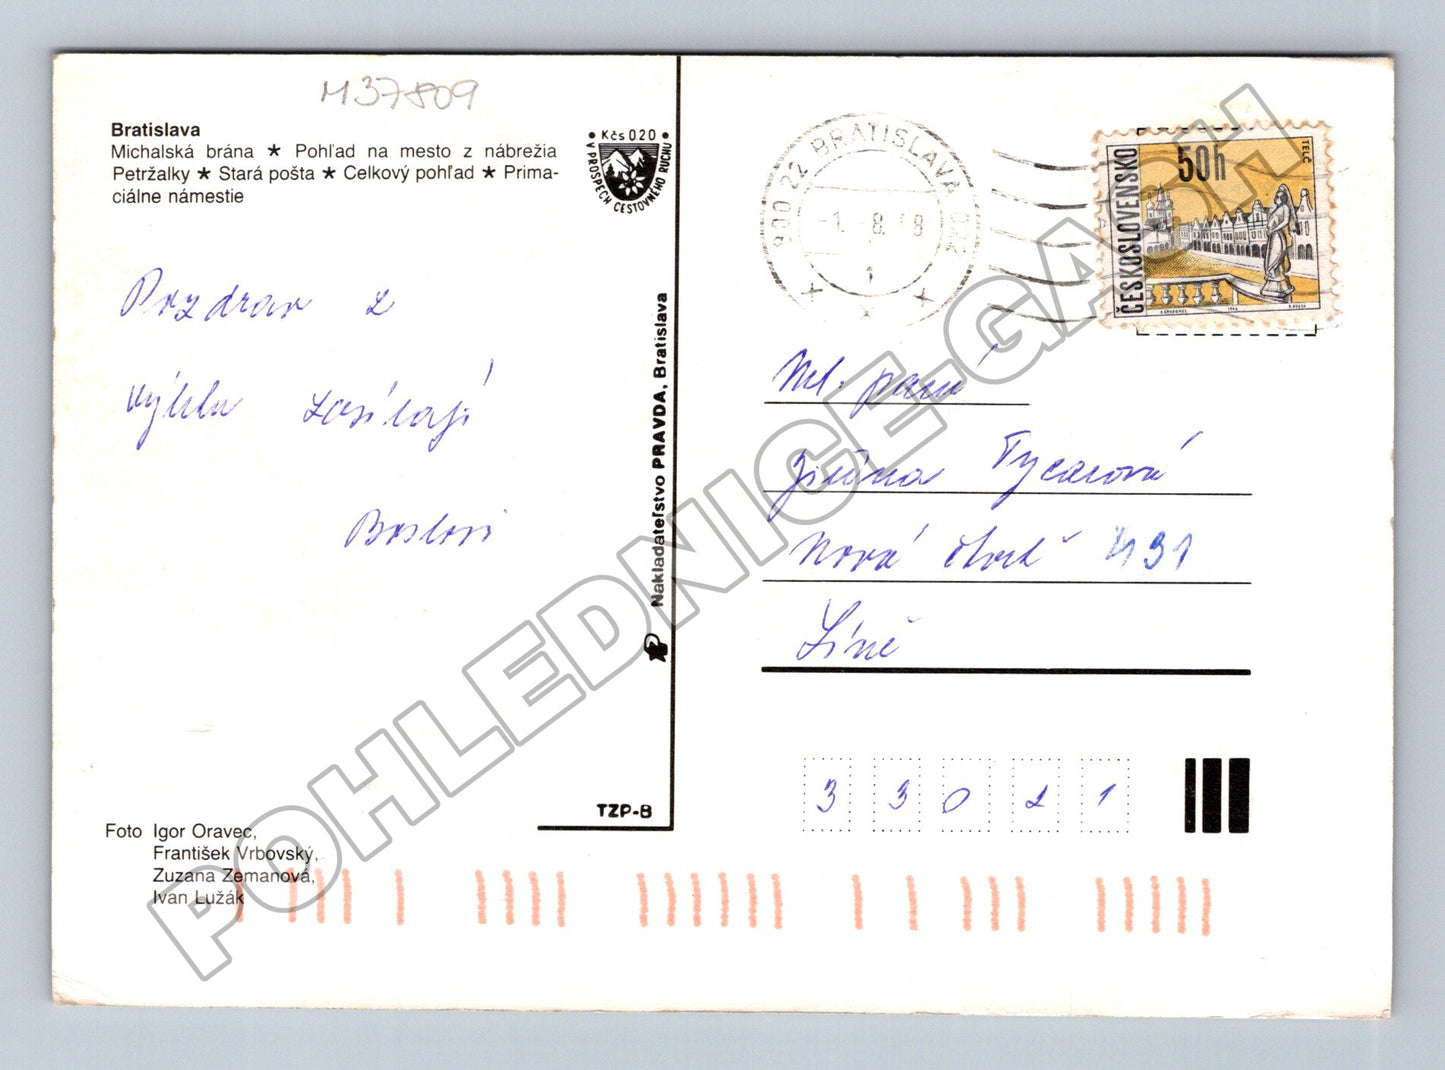 M37809
Bratislava
Michalská brána ★ Pohľad na mesto z nábrežia
Petržalky ★ Stará pošta ★ Celkový pohľad ★ Prima-
ciálne námestie
• Kčs 0.20 •
V PROSPECH CESTOVNÉHO RUCHU
Pozdrav z
výletu zasílají
Nakladateľstvo PRAVDA, Bratislava
TZP-B
Foto Igor Oravec,
František Vrbovský,
Zuzana Zemanová,
Ivan Lužák
900 22 BRATISLAVA 022
-1. 8. 8
1
ČESKOSLOVENSKO
50h
TELČ
1966
Ml. paní
Jiřina
Nová čtvrť
Líně
3 3 0 2 1
POHLEDNICE-GACH